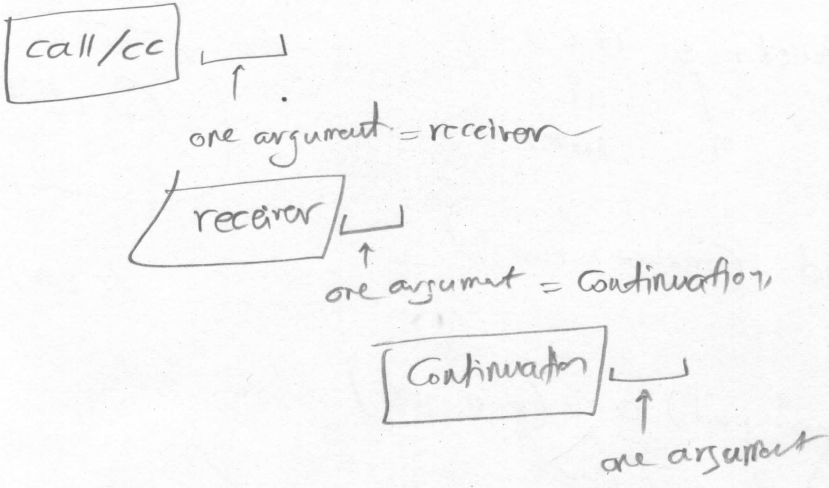 call/cc
one argument = receiver
receiver
one argument = Continuation
Continuation
one argument